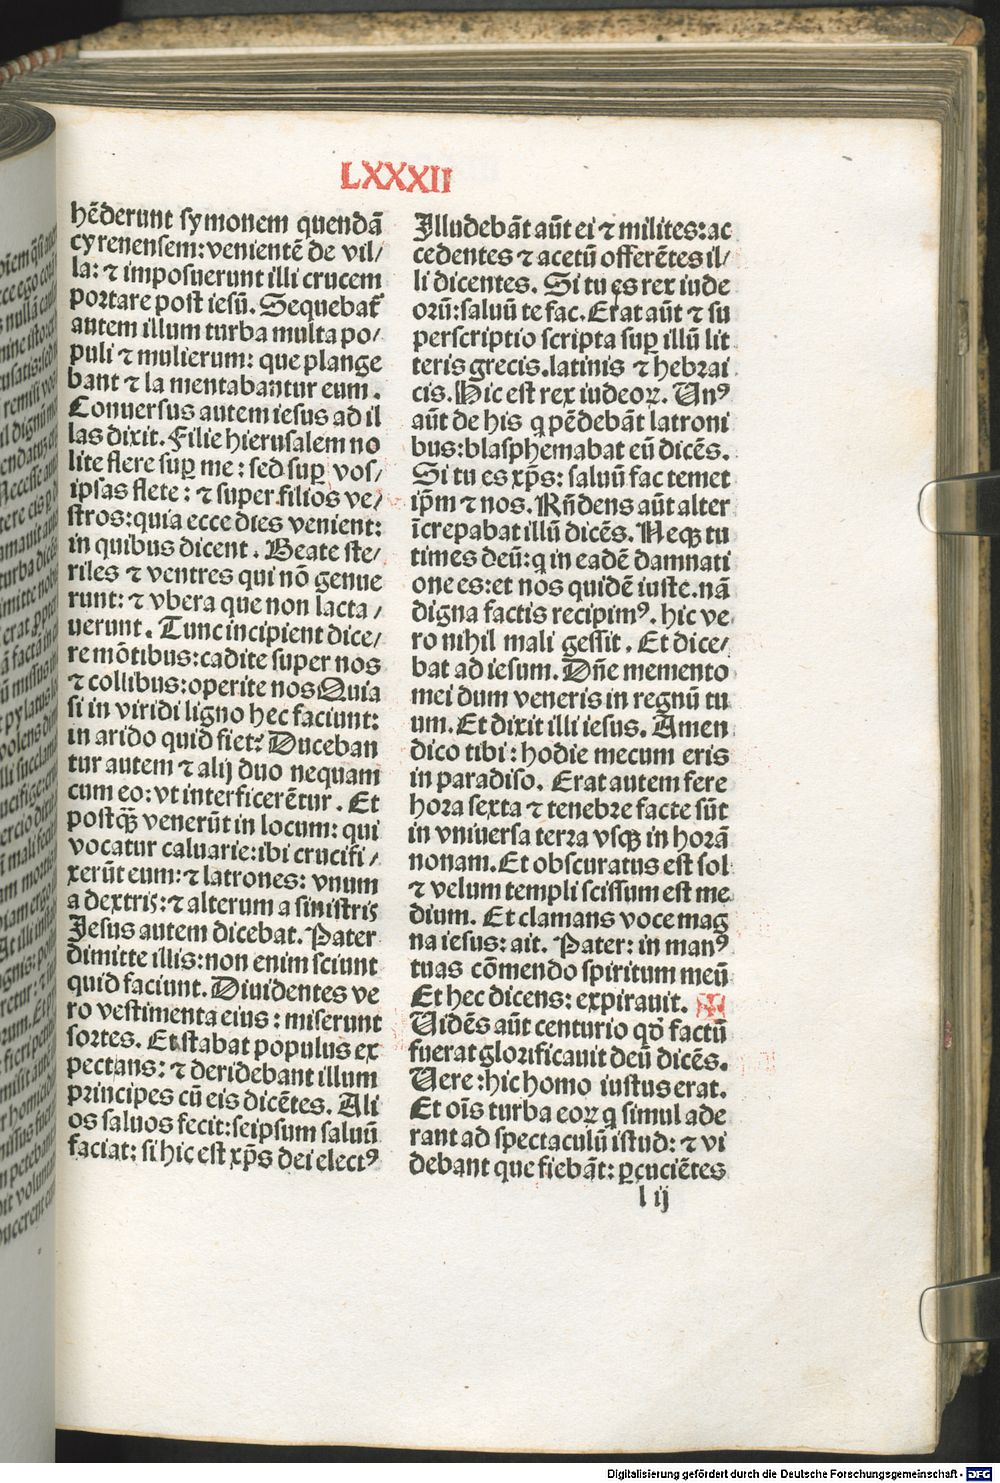 LXXXII
hēderunt symonem quendā
cyrenensem: venientē de vil/
la: ⁊ imposuerunt illi crucem
portare post iesū. Sequebat̄
autem illum turba multa po/
puli ⁊ mulierum: que plange
bant ⁊ la mentabantur eum.
Conuersus autem iesus ad il
las dixit. Filie hierusalem no
lite flere suꝑ me: sed suꝑ vos/
ipsas flete: ⁊ super filios ve/
stros: quia ecce dies venient:
in quibus dicent. Beate ste/
riles ⁊ ventres qui nō genue
runt: ⁊ vbera que non lacta/
uerunt. Tunc incipient dice/
re mōtibus: cadite super nos
⁊ collibus: operite nos Quia
si in viridi ligno hec faciunt:
in arido quid fiet? Duceban
tur autem ⁊ alij duo nequam
cum eo: vt interficerētur. Et
postqȝ̄ venerūt in locum: qui
vocatur caluarie: ibi crucifi/
xerūt eum: ⁊ latrones: vnum
a dextris: ⁊ alterum a sinistris
Jesus autem dicebat. Pater
dimitte illis: non enim sciunt
quid faciunt. Diuidentes ve
ro vestimenta eius: miserunt
sortes. Et stabat populus ex
pectans: ⁊ deridebant illum
principes cū eis dicētes. Ali
os saluos fecit: seipsum saluū
faciat: si hic est xp̄s dei electꝰ
Illudebāt aūt ei ⁊ milites: ac
cedentes ⁊ acetū offerētes il/
li dicentes. Si tu es rex iude
orū: saluū te fac. Erat aūt ⁊ su
perscriptio scripta suꝑ illū lit
teris grecis. latinis ⁊ hebrai
cis. Hic est rex iudeoꝝ. Unꝰ
aūt de his q pēdebāt latroni
bus: blasphemabat eū dicēs.
Si tu es xp̄s: saluū fac temet
ip̄m ⁊ nos. Rn̄dens aūt alter
īcrepabat illū dicēs. Neqȝ tu
times deū: q in eadē damnati
one es: et nos quidē iuste. nā
digna factis recipimꝰ. hic ve
ro nihil mali gessit. Et dice/
bat ad iesum. Dn̄e memento
mei dum veneris in regnū tu
um. Et dixit illi iesus. Amen
dico tibi: hodie mecum eris
in paradiso. Erat autem fere
hora sexta ⁊ tenebre facte sūt
in vniuersa terra vsqȝ in horā
nonam. Et obscuratus est sol
⁊ velum templi scissum est me
dium. Et clamans voce mag
na iesus: ait. Pater: in manꝰ
tuas cōmendo spiritum meū
Et hec dicens: expirauit.
Uidēs aūt centurio qd̄ factū
fuerat glorificauit deū dicēs.
Uere: hic homo iustus erat.
Et oīs turba eoꝝ q simul ade
rant ad spectaculū istud: ⁊ vi
debant que fiebāt: ꝑcuciētes
l ij
Digitalisierung gefördert durch die Deutsche Forschungsgemeinschaft - DFG